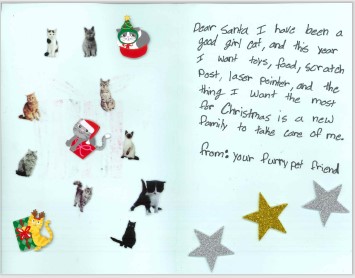 Dear, Santa I have been a
good girl cat, and this year
I want toys, food, scratch
Post, laser pointer, and the
thing I want the most
for Christmas is a new
family to take care of me.
from: your furry pet friend